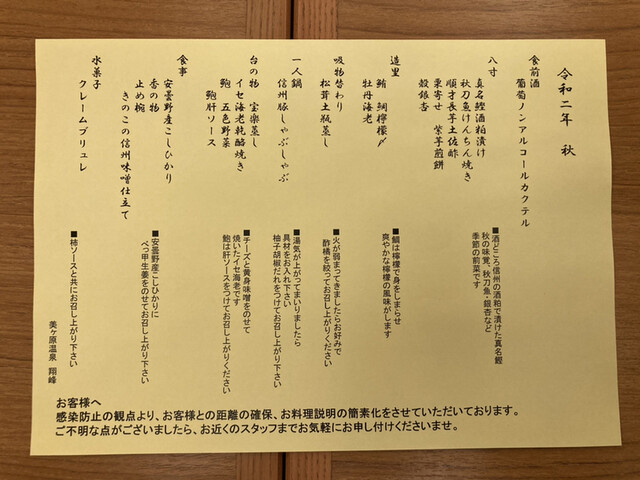 令和二年 秋
食前酒
葡萄ノンアルコールカクテル
八寸
真名鰹酒粕漬け
秋刀魚けんちん焼き
順才長芋土佐酢
栗寄せ 紫芋煎餅
殻銀杏
■酒どころ信州の酒粕で漬けた真名鰹
秋の味覚、秋刀魚・銀杏など
季節の前菜です
造里
鮪 鯛檸檬〆
牡丹海老
■鯛は檸檬で身をしまらせ
爽やかな檸檬の風味がします
吸物替わり
松茸土瓶蒸し
■火が弱まってきましたらお好みで
酢橘を絞ってお召し上がりください
一人鍋
信州豚しゃぶしゃぶ
■湯気が上がってまいりましたら
具材をお入れ下さい
柚子胡椒だれをつけてお召し上がり下さい
台の物 宝楽蒸し
イセ海老乾酪焼き
鮑 五色野菜
鮑肝ソース
■チーズと黄身味噌をのせて
焼いたイセ海老です
鮑は肝ソースをつけてお召し上がりください
食事
安曇野産こしひかり
香の物
止め椀
きのこの信州味噌仕立て
■安曇野産こしひかりに
べっ甲生姜をのせてお召し上がり下さい
水菓子
クレームブリュレ
■柿ソースと共にお召し上がり下さい
美ヶ原温泉 翔峰
お客様へ
感染防止の観点より、お客様との距離の確保、お料理説明の簡素化をさせていただいております。
ご不明な点がございましたら、お近くのスタッフまでお気軽にお申し付けくださいませ。